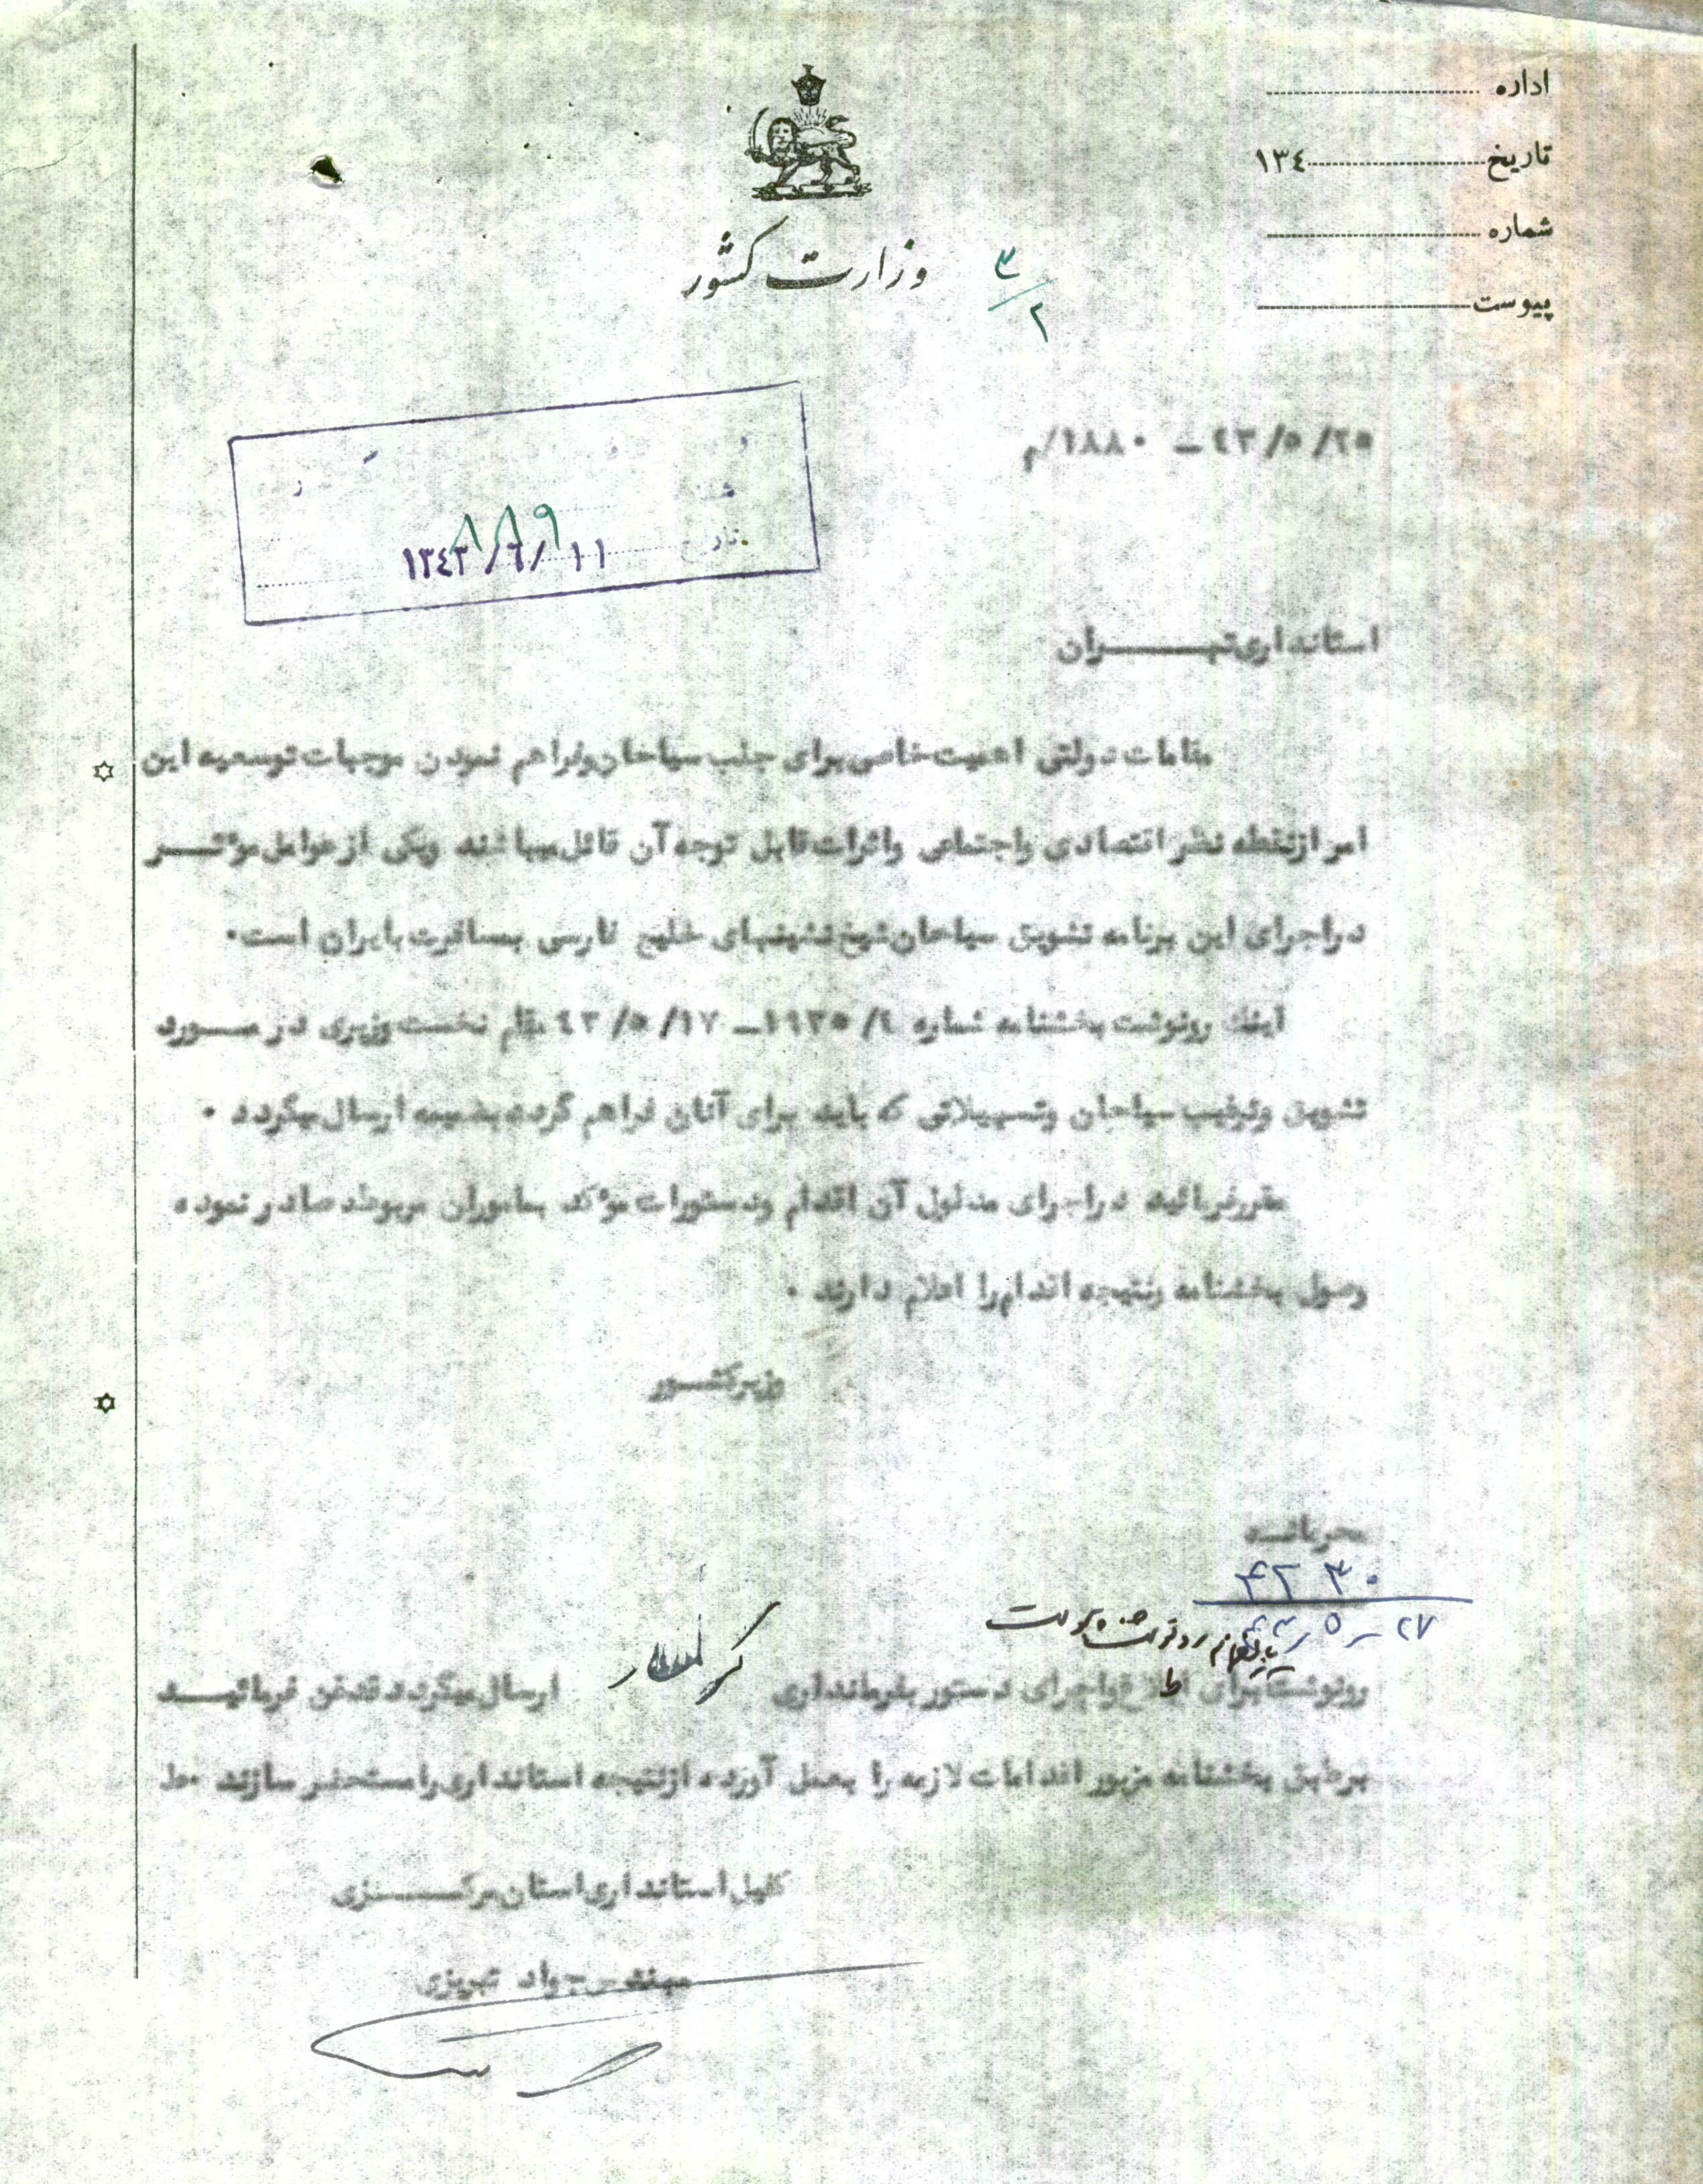 اداره
تاریخ ۱۳۴
شماره
پیوست
وزارت کشور
۳/۲
۲۵ /۵ /۴۳ – ۱۸۸۰ /م
۸۸۹
۱۳۴۳ /۶/ ۱۱
استانداری تهـــران
مقامات دولتی اهمیت خاصی برای جلب سیاحان وفراهم نمودن موجبات توسعیه این
امر ازنقطه نظر اقتصادی واجتماعی واثرات قابل توجه آن قائل میباشند ویکی از عوامل مؤثـــر
دراجرای این برنامه تشویق سیاحان شیخ نشینهای خلیج فارسی بمسافرت بایران است۰
اینک رونوشت بخشنامه شماره ۴/ ۱۹۲۵ – ۱۷/ ۵/ ۴۳ مقام نخست وزیری در مـــورد
تشویق وترغیب سیاحان وتسهیلاتی که باید برای آنان فراهم گردد بضمیمه ارسال میگردد ۰
مقررفرمائید دراجرای مدلول آن اقدام ودستورات مؤکد بماموران مربوطه صادر نموده
وصول بخشنامه ونتیجه اقدام را اعلام دارند ۰
وزیرکشـــور
محرمانـــه
۴۲۳۰
۲۷ – ۵ – ۴۳
رونوشت برای اطلاع واجرای دستور بفرمانداری گرمسار ارسال میگردد قدغن فرمائیـــد
برطبق بخشنامه مزبور اقدامات لازمه را بعمل آورده ازنتیجه استانداری رامستحضر سازند ۰ط
کفیل استانداری استان مرکـــزی
مهندس جواد تبریزی